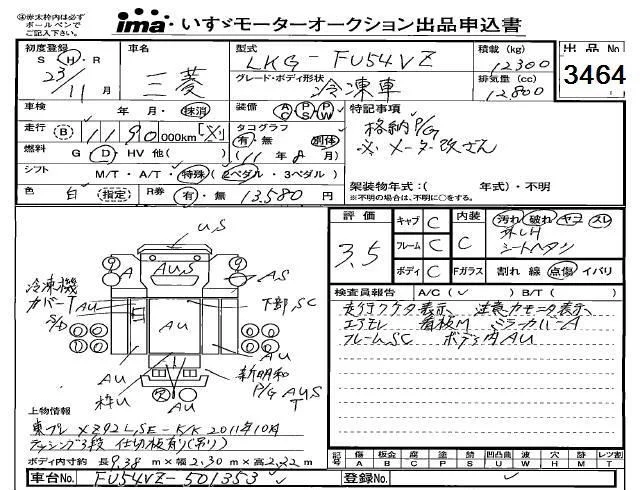 ④赤太枠内は必ず ボールペンで ご記入下さい。
ima いすゞモーターオークション出品申込書
初度登録 S・H・R 23年 11月
車名 三菱
型式 LKG-FU54VZ
グレード・ボディ形状 冷凍車
積載(kg) 12300
排気量(cc) 12800
出品No 3464
車検 年 月・抹消
装備 AC PS PW
特記事項
格納P/G
※メーター改ざん
走行 B 1190,000km「※」
タコグラフ 有・無 別体
燃料 G・D・HV 他( )
(11年 8月)
シフト M/T・A/T・特殊(2ペダル・3ペダル)
架装物年式:( 年式)・不明
※不明の場合は、不明に○をする。
色 白(指定)
R券 有・無 13,580円
評価 3.5
キャブ C
フレーム C
ボディ C
内装 C
Fガラス
汚れ 破れ ヤコ スレ
シートヘタシ
割れ 線 点傷 イバリ
検査員報告 A/C(✓) B/T( )
走行ククタ表示、注意カモニタ表示、
エラモレ 看板M ミラーカバーA
フレームSC ボディ内AU
US
A AUS AS
冷凍機 カバーT
S/D
AU AU AU
下部SC
AU 枠U AU
新明和 P/G AUS T
欠
上物情報
東プレ XZ92LSE-5/K 2011年10月
ラッシング3段 仕切板有り(吊り)
ボディ内寸約 長9.38m×幅2.30m×高2.32m
記号 傷A 板金B 腐C 塗P 過S 凹凸曲U 波W 穴H 跡M レツ割T
車台No. FU54VZ-501353
登録No.